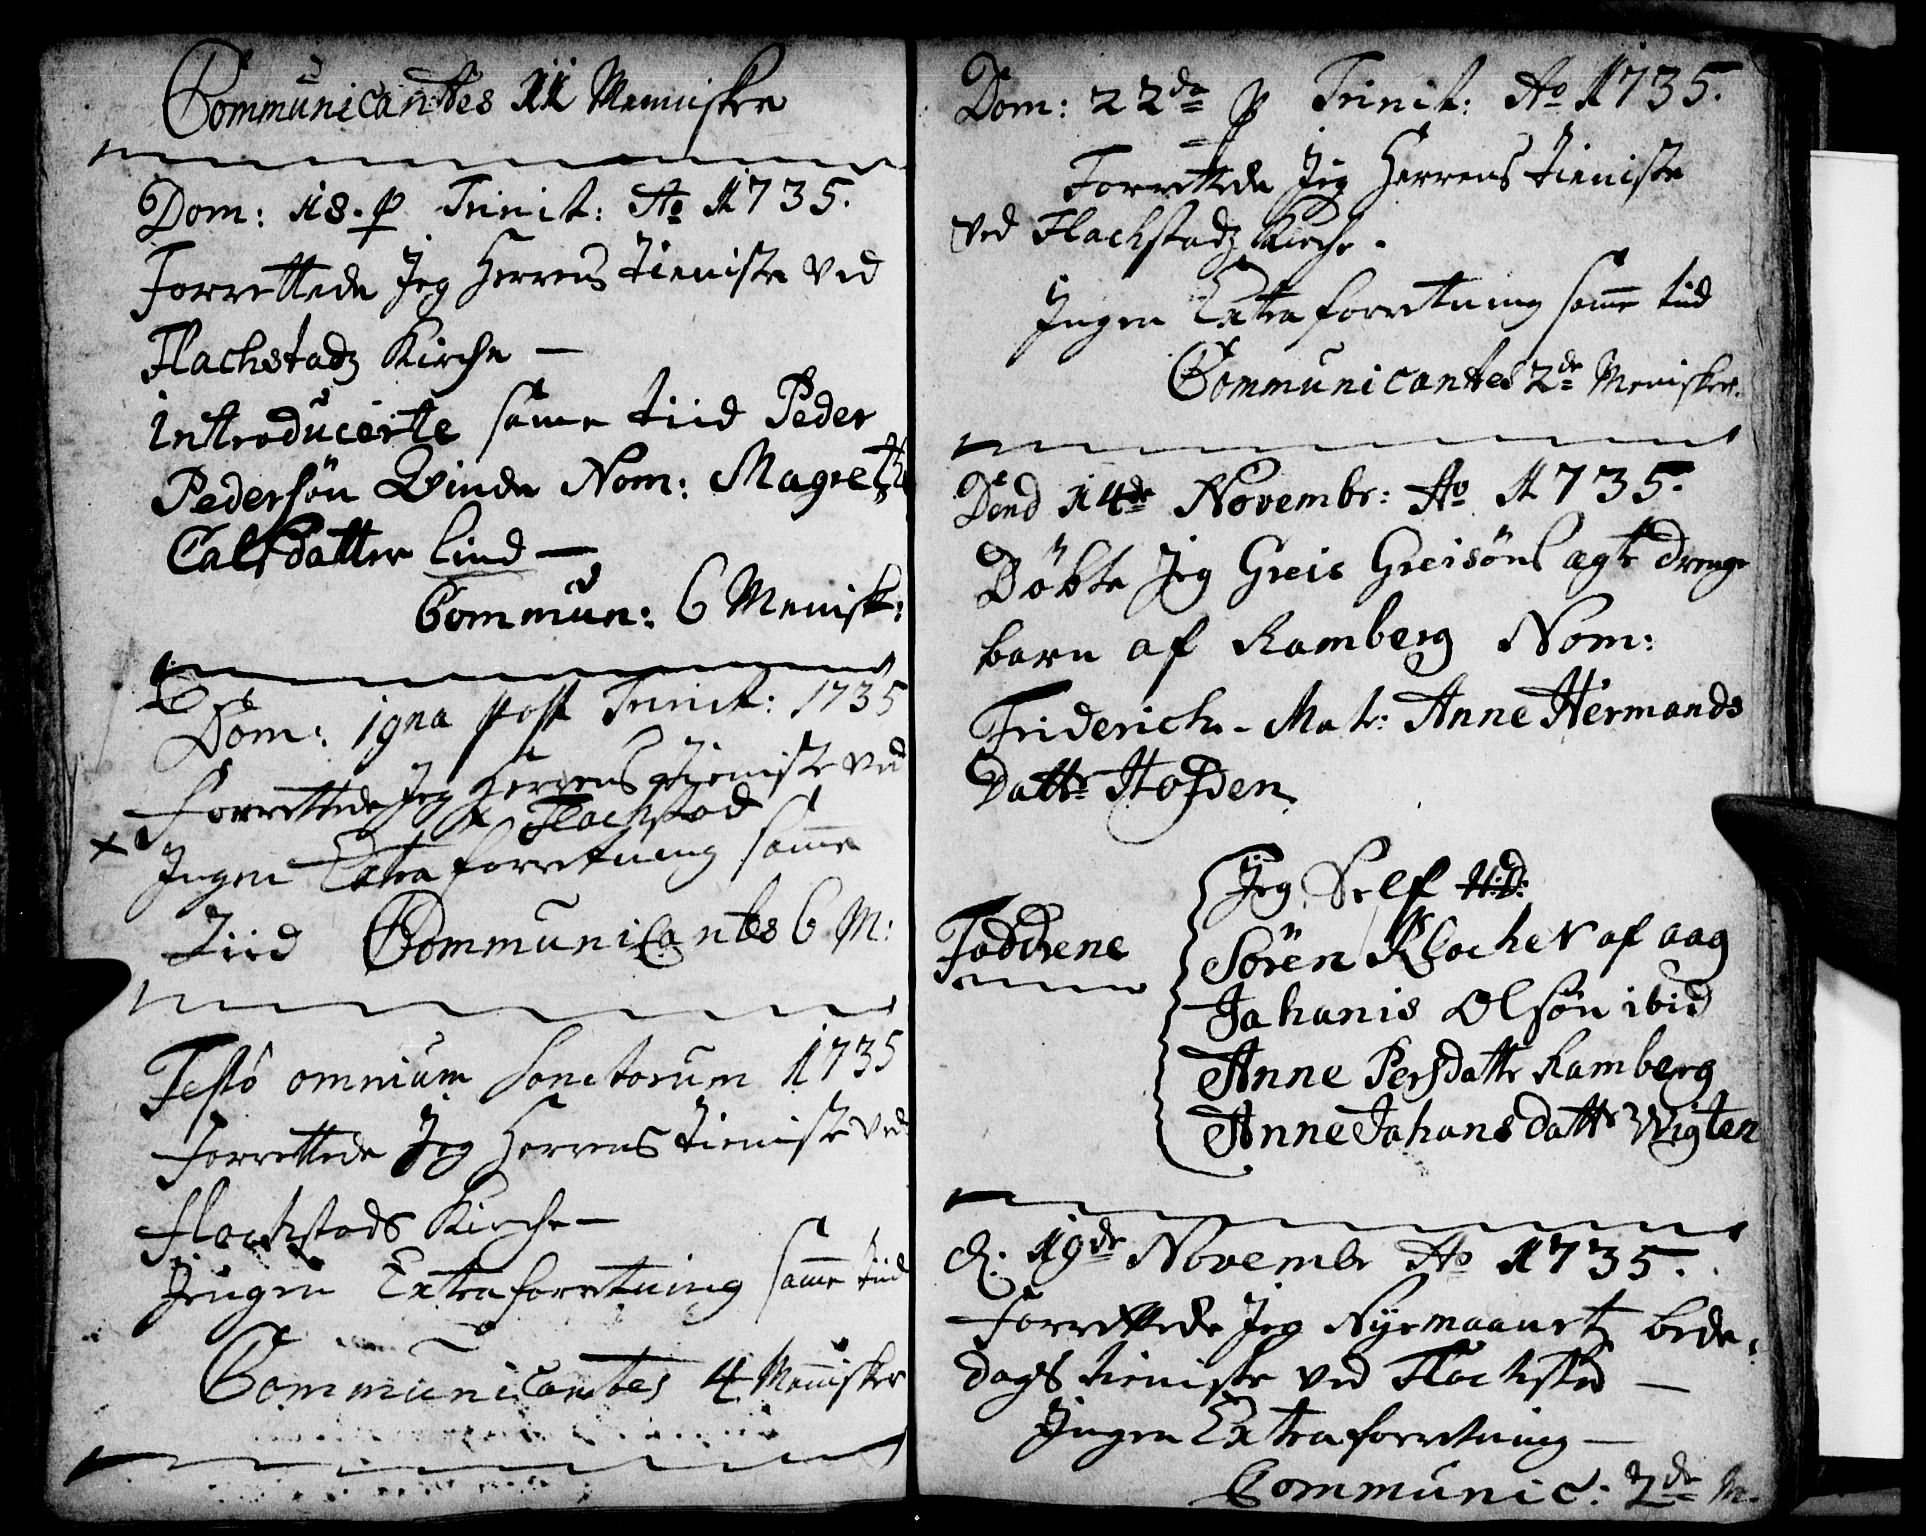 Communicantes 11 Mennisker
Dom: 18. p Trinit: Ao 1735.
Forrettede Jeg Herrens tieniste ved
Flachstadz Kirche —
introducerte same tiid Peder
Pedersön Qvinde Nom: Magreth
Calsdatter Lind —
Commun: 6 Menisk:
Dom: 19na post Trinit: 1735
Forrettede Jeg Herrens tieniste ved
Flachstad
x Ingen Extra forretning samme
tiid Communicantes 6 M:
Festo omnium sanctorum 1735
Forrettede Jeg Herrens tieniste ved
Flachstads Kirche —
Jngen Extraforretning samme tiid
Communicantes 4 Mennisker
Dom: 22da p Trinit: Ao 1735.
Forrettede Jeg Herrens tieniste
ved Flachstadz Kirche.
Jngen Extra forretning samme tiid
Communicantes 2de Menisker.
Dend 14de Novembr: Ao 1735.
Döbte Jeg Greis Greisöns ægte drenge
barn af Ramberg Nom:
Friderich - Mat: Anne Hermands
Dattr Hofden.
Jeg Self
Faddrene Sören Klocker af aag
Johanis Olsön ibid
Anne Persdattr Ramberg
Anne Johansdattr Wigten
d. 19de Novembr Ao 1735.
Forrettede Jeg Nyemaanetz bede-
dags tieniste ved Flachstad —
Jngen Extraforretning —
Communic: 2de M.